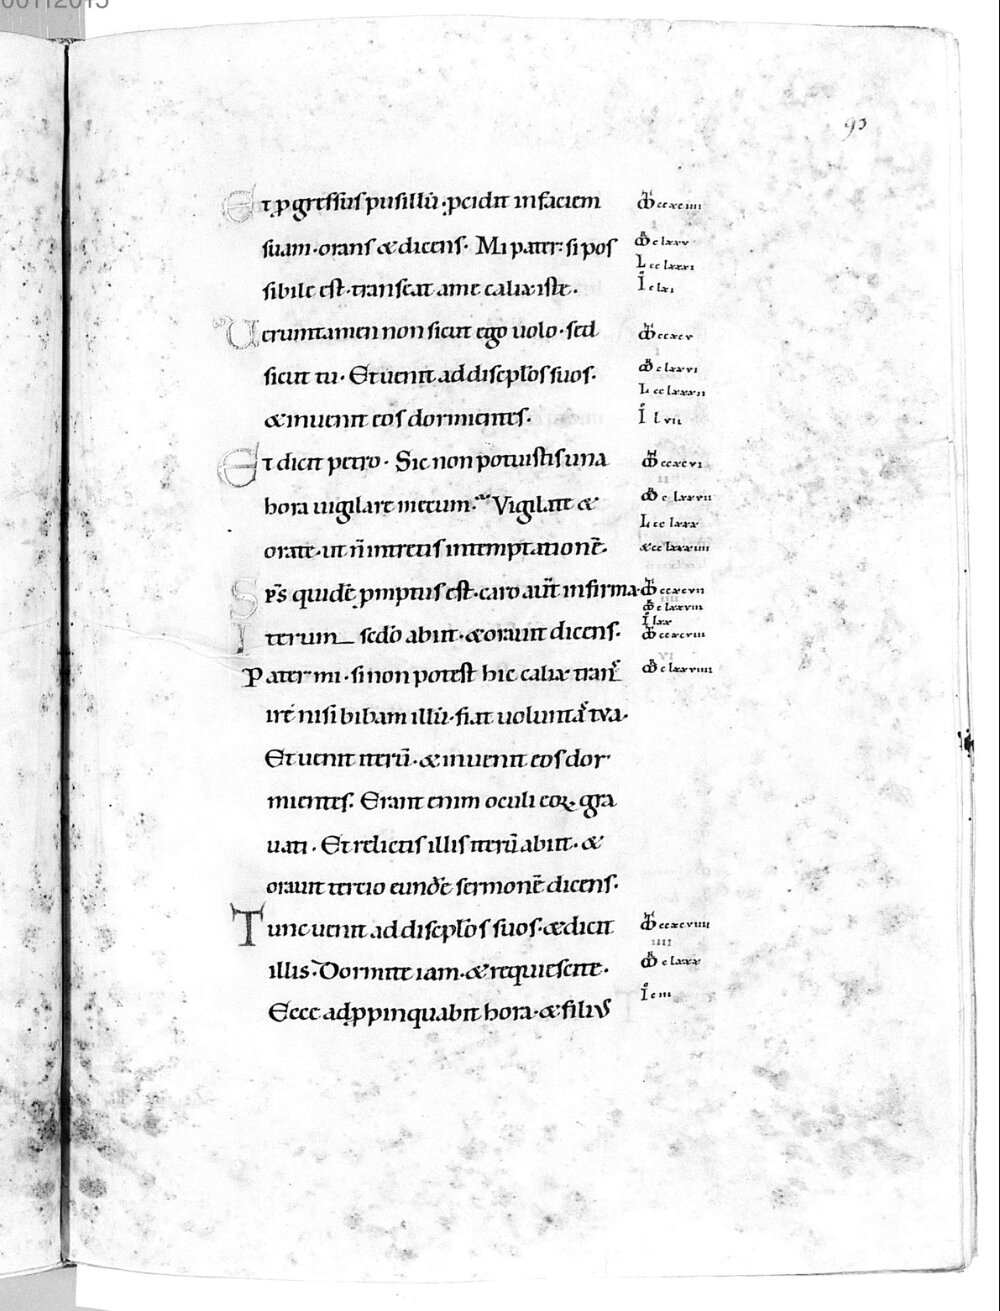 93
Et ꝓgressus pusillū · ꝓcidit in faciem
suam · orans & dicens · Mi pater · si pos
sibile est · transeat a me calix iste ·
Uerumtamen non sicut ego uolo · sed
sicut tu · Et uenit ad discplōs suos ·
& inuenit eos dormientes ·
Et dicit petro · Sic non potuistis una
hora uigilare mecum · Vigilate &
orate · ut n̄ intretis in temptationē ·
Sp̄s quidē pmptus est · caro aut̄ infirma ·
Iterum sedō abiit · & orauit dicens ·
Pater mi · si non potest hic calix trans
ire nisi bibam illū · fiat uoluntas tua ·
Et uenit iterū · & inuenit eos dor
mientes · Erant enim oculi eoꝝ gra
uati · Et relictis illis iterū abiit · &
orauit tercio eundē sermonē dicens ·
Tunc uenit ad discplōs suos · & dicit
illis · Dormite iam · & requiescite ·
Ecce adppinquabit hora · & filius
ccxciiii
clxxv
L cclxxxi
I clxi
ccxcv
clxxvi
L cclxxxii
I lvii
ccxcvi
clxxvii
L cclxxx
& cclxxxiiii
ccxcvii
clxxviii
I lxx
ccxcviii
clxxviiii
ccxcviiii
clxxx
I ciii